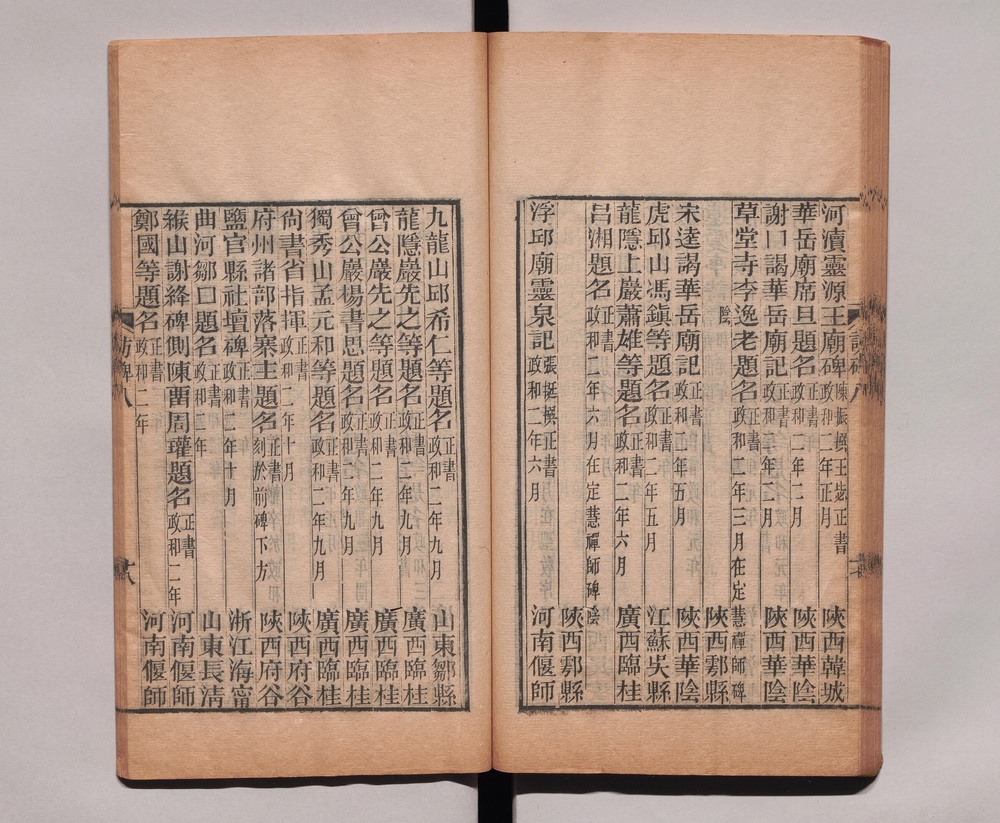 河瀆靈源王廟碑 陳振撰王 正書 政和二年正月 陝西韓城
華岳廟席旦題名 正書 政和二年二月 陝西華陰
謝口謁華岳廟記 正書 政和二年二月 陝西華陰
草堂寺李逸老題名 正書 政和二年三月在定慧禪師碑
陰 陝西鄠縣
宋逵謁華岳廟記 正書 政和二年五月 陝西華陰
虎邱山馮鎮等題名 正書 政和二年五月 江蘇吳縣
龍隱上巖蕭雄等題名 正書 政和二年六月 廣西臨桂
呂湘題名 正書 政和二年六月在定慧禪師碑陰
陝西鄠縣
浮邱廟靈泉記 張挺撰正書 政和二年六月 河南偃師
訪碑八
九龍山邱希仁等題名 正書 政和二年九月 山東鄒縣
龍隱巖先之等題名 正書 政和二年九月 廣西臨桂
曾公巖先之等題名 正書 政和二年九月 廣西臨桂
曾公巖楊書思題名 正書 政和二年九月 廣西臨桂
獨秀山孟元和等題名 正書 政和二年九月 廣西臨桂
尙書省指揮 正書 政和二年十月 陝西府谷
府州諸部落寨主題名 正書 刻於前碑下方 陝西府谷
鹽官縣社壇碑 正書 政和二年十月 浙江海甯
曲河鄒口題名 正書 政和二年 山東長淸
緱山謝絳碑側陳 周瓘題名 正書 政和二年 河南偃師
鄭國等題名 正書 政和二年 河南偃師
訪碑八